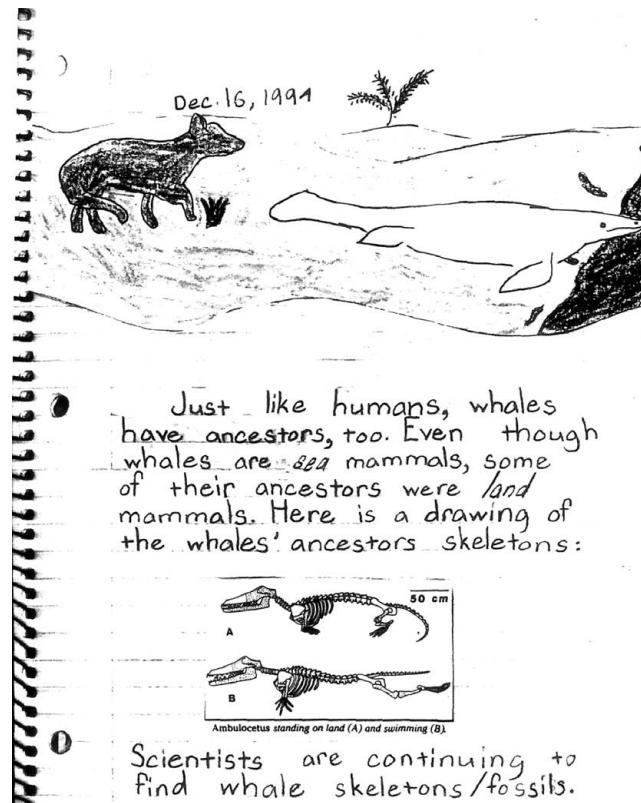 Dec. 16, 1994
Just like humans, whales
have ancestors, too. Even though
whales are sea mammals, some
of their ancestors were land
mammals. Here is a drawing of
the whales' ancestors skeletons:
50 cm
A
B
Ambulocetus standing on land (A) and swimming (B).
Scientists are continuing to
find whale skeletons/fossils.